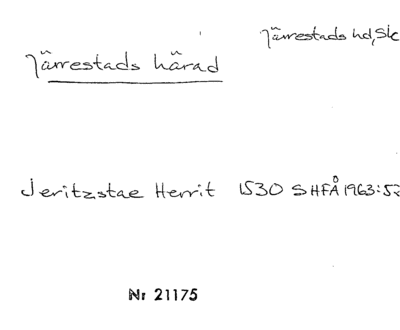 Järrestads hd, Sk
Järrestads härad
Jeritzstae Herrit 1530 SHFÅ 1963:52
Nr 21175